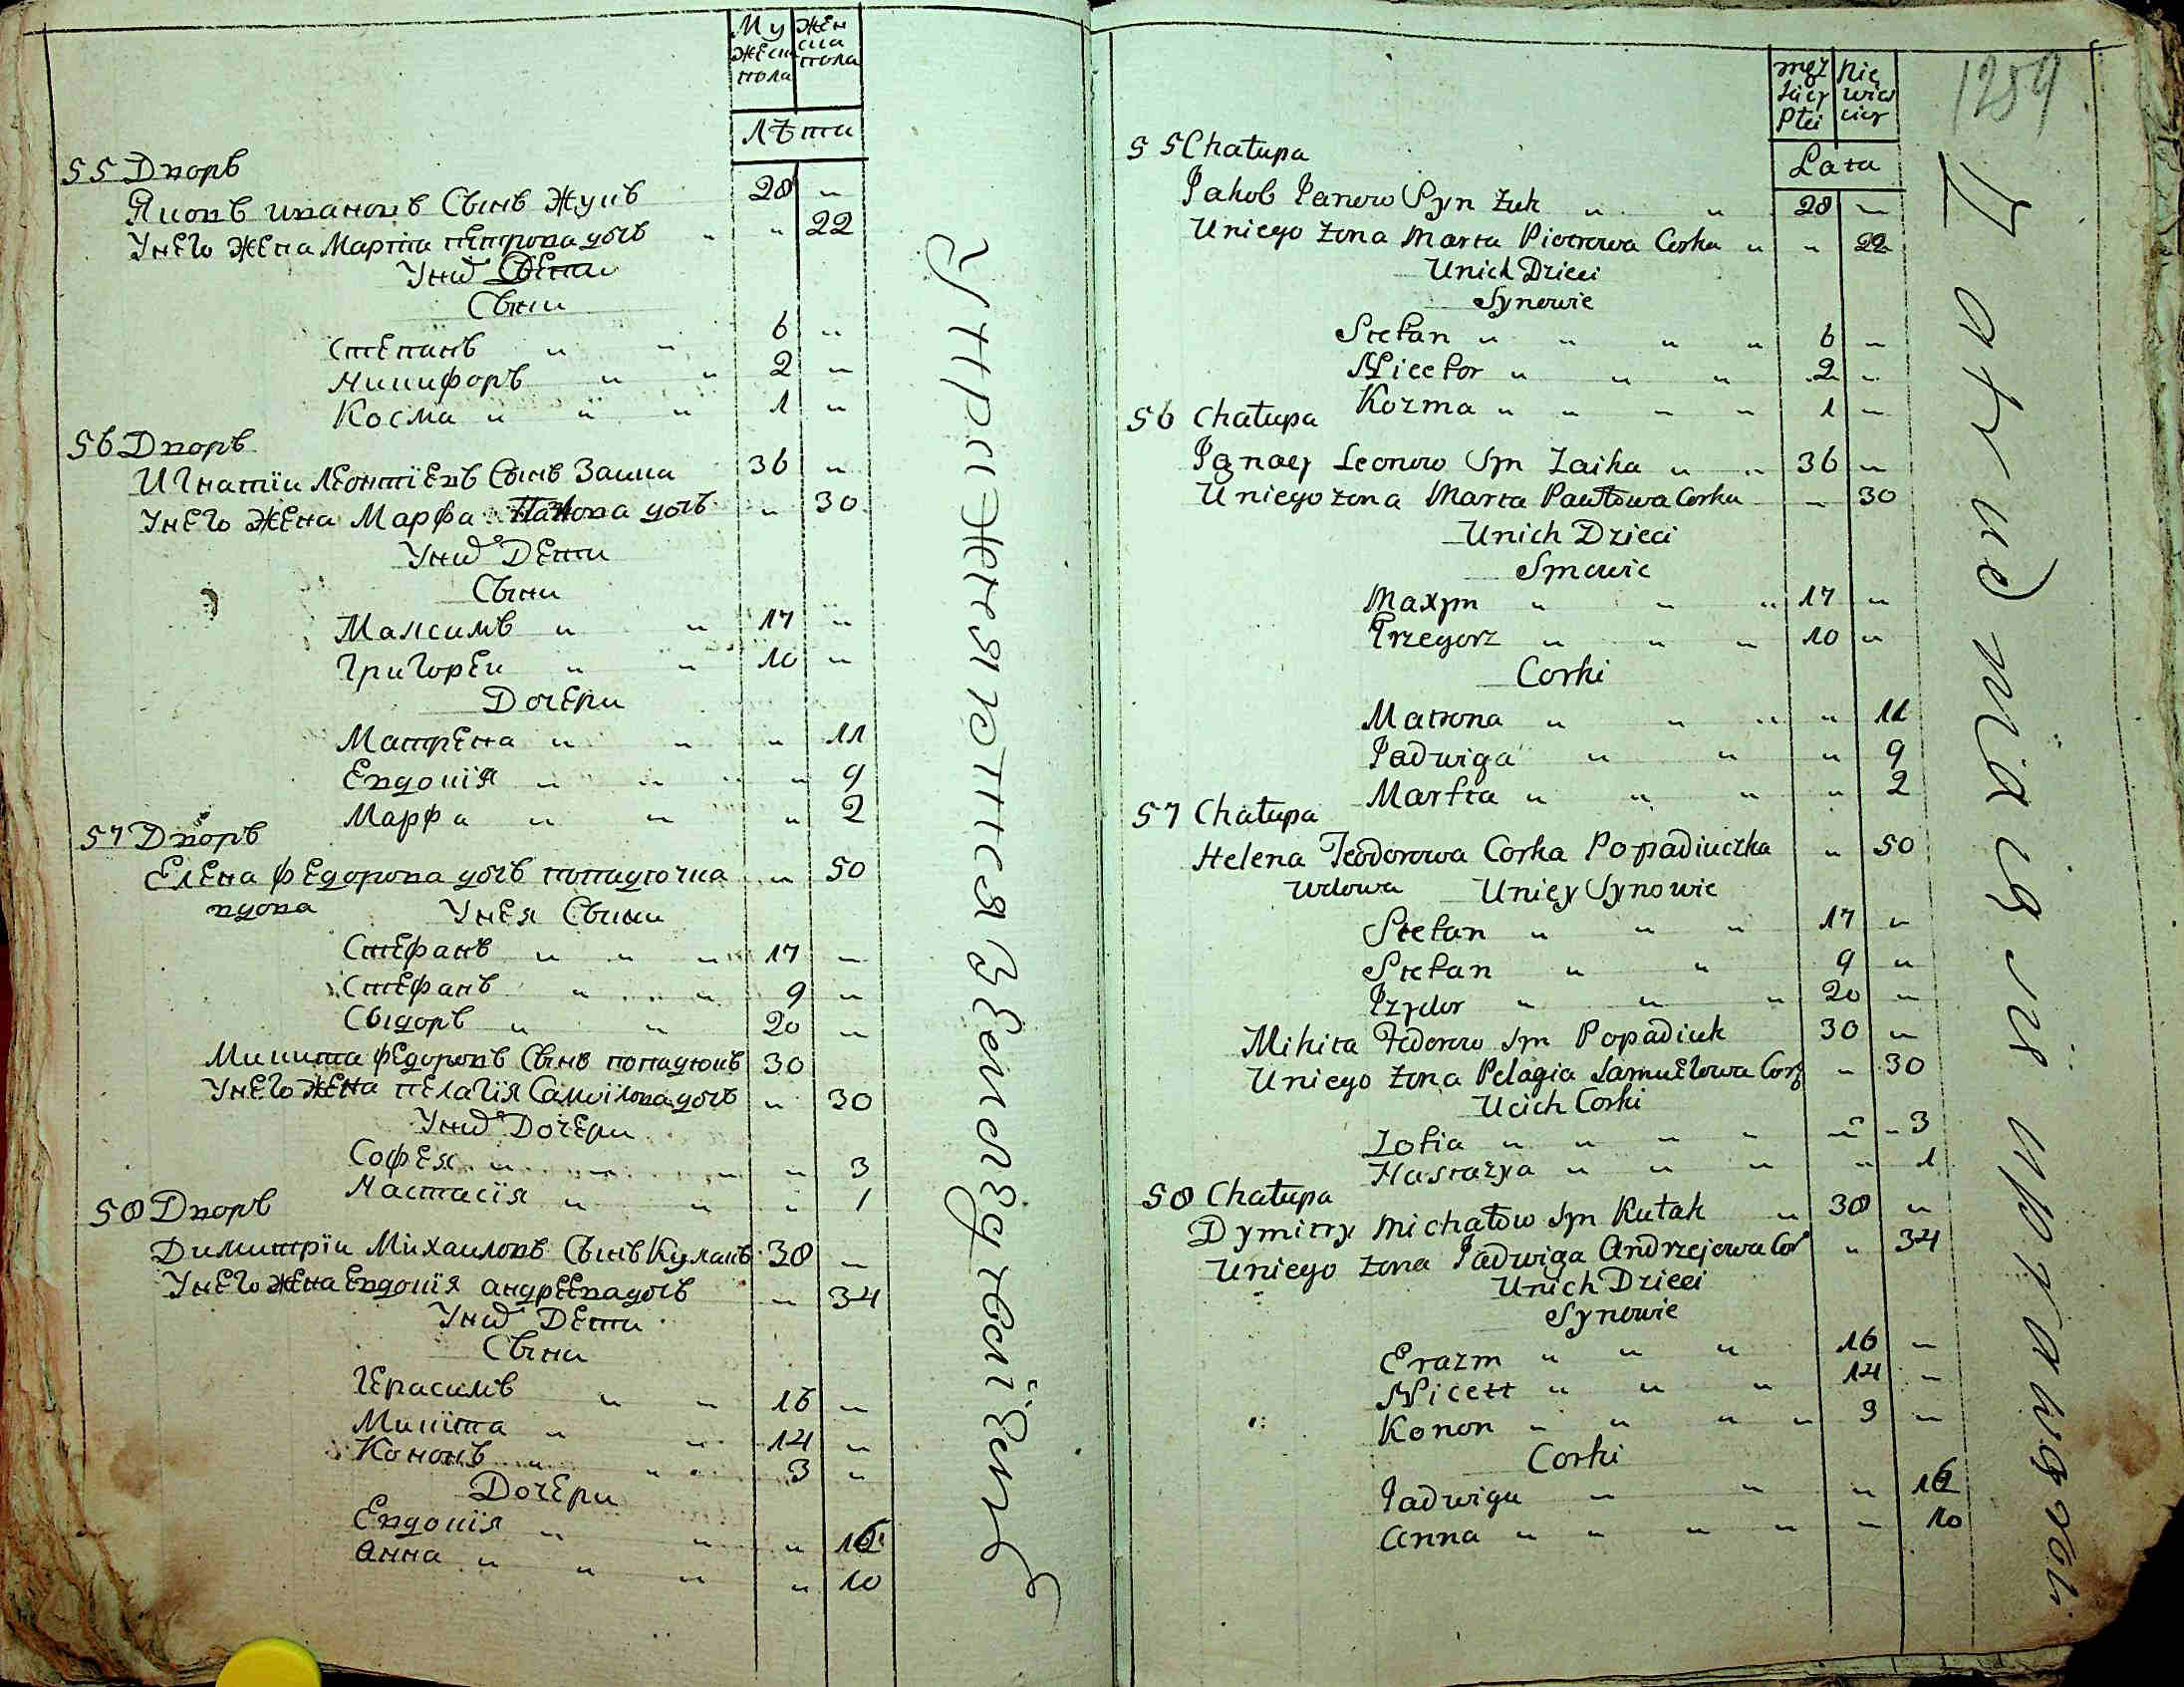 Му жеск пола
жен ска пола
лѣта
55 Дворъ
Яковъ ивановъ Сынъ Жукъ 28 "
Унего жена Марта петрова дочь " " 22
Унихъ Дети
Сыни
Степанъ " " 6 "
Никифоръ " " 2 "
Косма " " " 1 "
56 Дворъ
Игнатїи Леонтїевъ Сынъ Заика 36 "
Унего жена Марфа дочь " 30
Унихъ Дети
Сыни
Максимъ " " 17 "
Григореи " " 10 "
Дочери
Матрена " " " 11
Евдокїя " " " " 9
Марфа " " " 2
57 Дворъ
Елена федорова дочь попадючка " 50
вдова Унея Сыни
Стефанъ " " " 17 "
Стефанъ " " " 9 "
Сыдоръ " " 20 "
Микита федоровъ Сынъ попадюкъ 30
Унего жена пелагїя Самоилова дочь " 30
Унихъ Дочери
Софея " " " " 3
Настасїя " " " 1
58 Дворъ
Димитрїи Михаиловъ Сынъ Кулакъ 38 "
Унего жена Евдокїя андреева дочь " 34
Унихъ Дети
Сыни
Герасимъ " " 16 "
Микита " " 14 "
Кононъ " " 3 "
Дочери
Евдокїя " " "
анна " " " " 10
męz
Lata
1259
55 Chałupa
Jakob Janow Syn Żuk " " 28 "
Uniego żona Marta Piotrowa Corka " " 22
Unich Dzieci
Synowie
Stefan " " " " 6 "
Nicefor " " " 2 "
Kozma " " " " 1 "
56 Chałupa
Ignacy Leonow Syn Zaika " " 36 "
Uniego żona Marta Pawłowa Corka " 30
Unich Dzieci
Synowie
Maxym " " " 17 "
Grzegorz " " " 10 "
Corki
Matrona " " " " 11
Jadwiga " " " 9
Marfta " " " " 2
57 Chałupa
Helena Teodorowa Corka Popadiuczka " 50
wdowa Uniey Synowie
Stefan " " " 17 "
Stefan " " 9 "
Izydor " " " 20 "
Mikita Fedorow Syn Popadiuk 30 "
Uniego żona Pelagia Samuełowa Cor " 30
Ucich Corki
Zofia " " " " " " 3
Nastazya " " " " 1
58 Chałupa
Dymitry Michałow Syn Kułak " 38 "
Uniego żona Jadwiga Andrzejowa Cor " 34
Unich Dzieci
Synowie
Erazm " " " 16 "
Nicett " " " 14 "
Konon " " " " 3 "
Corki
Jadwiga " " "
Anna " " " " " 10